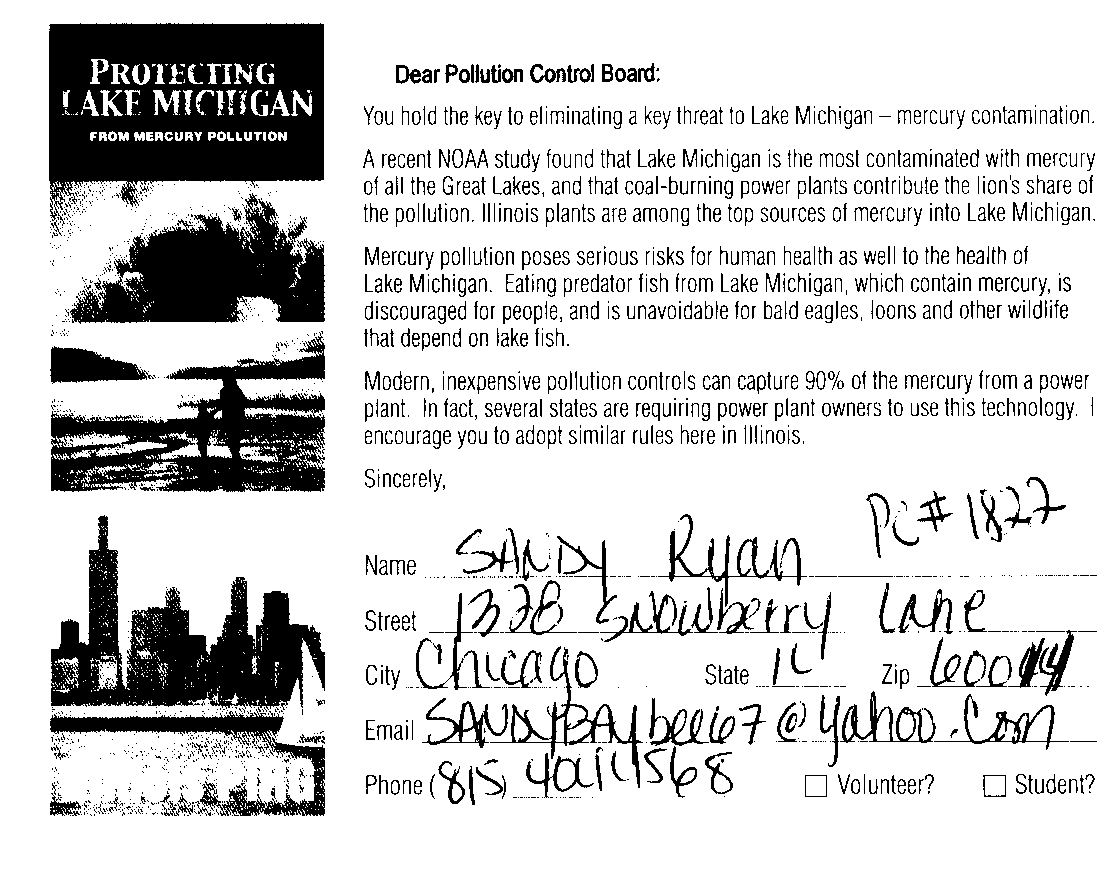 PROTECTING
LAKE MICHIGAN
FROM MERCURY POLLUTION
ILLINOIS PIRG
Dear Pollution Control Board:
You hold the key to eliminating a key threat to Lake Michigan – mercury contamination.
A recent NOAA study found that Lake Michigan is the most contaminated with mercury
of all the Great Lakes, and that coal-burning power plants contribute the lion's share of
the pollution. Illinois plants are among the top sources of mercury into Lake Michigan.
Mercury pollution poses serious risks for human health as well to the health of
Lake Michigan. Eating predator fish from Lake Michigan, which contain mercury, is
discouraged for people, and is unavoidable for bald eagles, loons and other wildlife
that depend on lake fish.
Modern, inexpensive pollution controls can capture 90% of the mercury from a power
plant. In fact, several states are requiring power plant owners to use this technology. I
encourage you to adopt similar rules here in Illinois.
Sincerely,
PC# 1827
Name SANDY Ryan
Street 1328 Snowberry Lane
City Chicago State IL Zip
Email @yahoo.com
Phone (815)
Volunteer? Student?